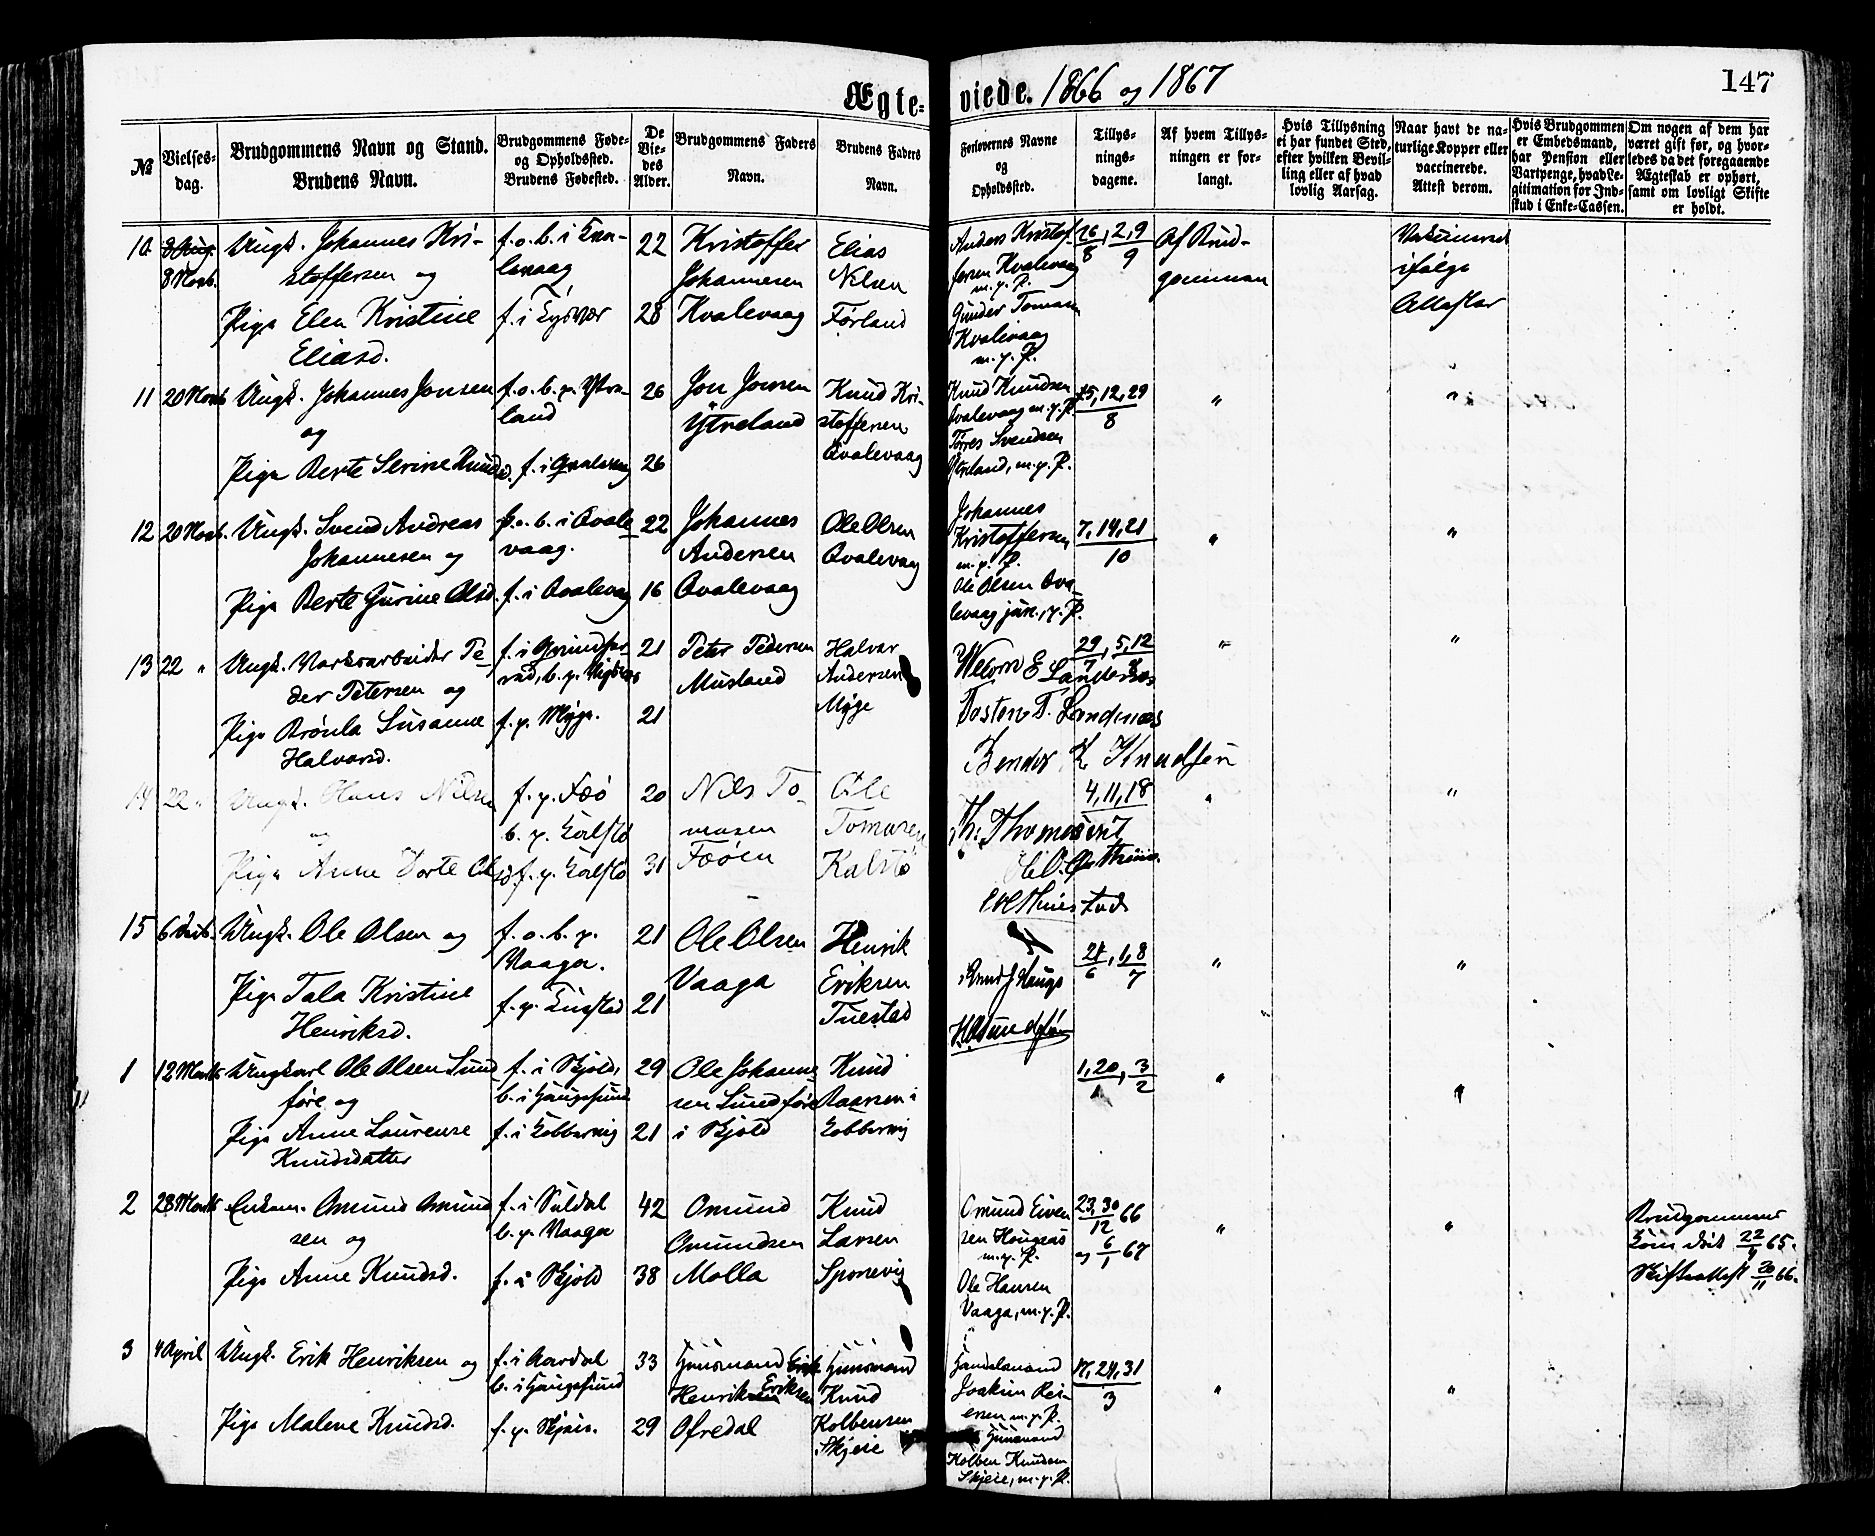 Ægte-viede. 1866 og 1867
147
№
Vielses-dag.
Brudgommens Navn og Stand.
Brudens Navn.
Brudgommens Føde- og Opholdssted.
Brudens Fødested.
De Vie-des Alder.
Brudgommens Faders Navn.
Brudens Faders Navn.
Forlovernes Navne og Opholdssted.
Tillys-nings-dagene.
Af hvem Tillys-ningen er for-langt.
Hvis Tillysning ei har fundet Sted, efter hvilken Bevil-ling eller af hvad lovlig Aarsag.
Naar havt de na-turlige Kopper eller vaccinerede. Attest derom.
Hvis Brudgommen er Embedsmand, har Pension eller Vartpenge, hvad Le-gitimation for Ind-skud i Enke-Cassen.
Om nogen af dem har været gift før, og hvor-ledes da det foregaaende Ægteskab er ophørt, samt om lovligt Skifte er holdt.
10. 8 Novb.
Ungk. Johannes Kri-
stoffersen og
Pige Elen Kristine
Eliasd.
f. o. b. i Kva-
levaag
f. i Lysvær
22
28
Kristoffer
Johannesen
Kvalevaag
Elias
Nilsen
Førland
Anders Kristof-
fersen Kvalevaag
m. p. P.
Gunder Tomasen
Kvalevaag
m. p. P.
26/8, 2, 9/9
Af Brud-
gommen
Vakcinered
ifølge
Attester
11 20 Novb
Ungk. Johannes Jonsen
og
Pige Berte Serine Knudsd.
f. o. b. p. Ytre-
land
f. i Qvalevaag
26
26
Jon Jonsen
Ytreland
Knud Kri-
stoffersen
Qvalevaag
Knud Knudsen
Qvalevaag m. p. P.
Tørres Svendsen
Ytreland, m. p. P.
12, 29
8
"
"
12 20 Novb.
Ungk. Svend Andreas
Johannesen og
Pige Berte Gurine Olsd.
f. o. b. i Qvale-
vaag.
f. i Qvalevaag
22
16
Johannes
Andersen
Qvalevaag
Ole Olsen
Qvalevaag
Johannes
Kristoffersen
m. p. P.
Ole Olsen Qva-
levaag jun., p. P.
7, 14, 21
10
"
"
13 22 "
Ungk. Værksarbeider Pe-
der Petersen og
Pige Brønla Susanne
Halvorsd.
f. p. Myge.
21
21
Peter Pedersen
Musland
Halvor
Andersen
Myge
29/7, 5, 12/8
Tosten T. Landenæs
"
"
14 22 "
Ungk. Hans Nilsen
og
Pige Anne Dorte Olsd.
f. p. Føø
b. p. Kalstø
f. p. Kalstø
20
31
Nils To-
masen
Føøen
Ole
Tomasen
Kalstø
Bender K. Knudsen
Th. Thomassen
4, 11, 18
"
"
15 6 Decb.
Ungk. Ole Olsen og
Pige Tala Kristine
Henriksd.
f. o. b. p.
Vaaga.
f. p. Tuestad
21
21
Ole Olsen
Vaaga
Henrik
Eriksen
Tuestad
24/6, 1, 8/7
"
"
1 12 Marts
Ungkarl Ole Olsen Sund-
føre og
Pige Anne Laurense
Knudsdatter
f. i Skjold,
b. i Haugesund
f. i Kobbervig
29
21
Ole Johanne-
sen Sundføre
i Skjold
Knud
Aanensen i
Kobbervig
20, 3/2
"
"
2 28 Marts
Enkem. Omund Omund-
sen og
Pige Anne Knudsd.
f. i Suldal
b. p. Vaaga
f. i Skjold
42
38
Omund
Omundsen
Molla
Knud
Larsen
Sponevig
Omund Eiven
sen Haugaas
m. p. P.
Ole Hansen
Vaaga, m. p. P.
23, 30/12 66
og 6/1 67
"
"
Brudgommens
Kone død 22/4 65.
Skifteattest 20/11 66.
3 4 April
Ungk. Erik Henriksen og
Pige Malene Knudsd.
f. i Aardal
b. i Haugesund
f. p. Skjeie.
33
29
Huusmand Erik
Henriksen Eriksen
Øfredal
Huusmand
Knud
Kolbensen
Skjeie
Handelsmand
Joakim Rei-
ersen m. p. P.
Huusmand
Kolben Knudsen
Skjeie, m. p. P.
17, 24, 31
3
"
"